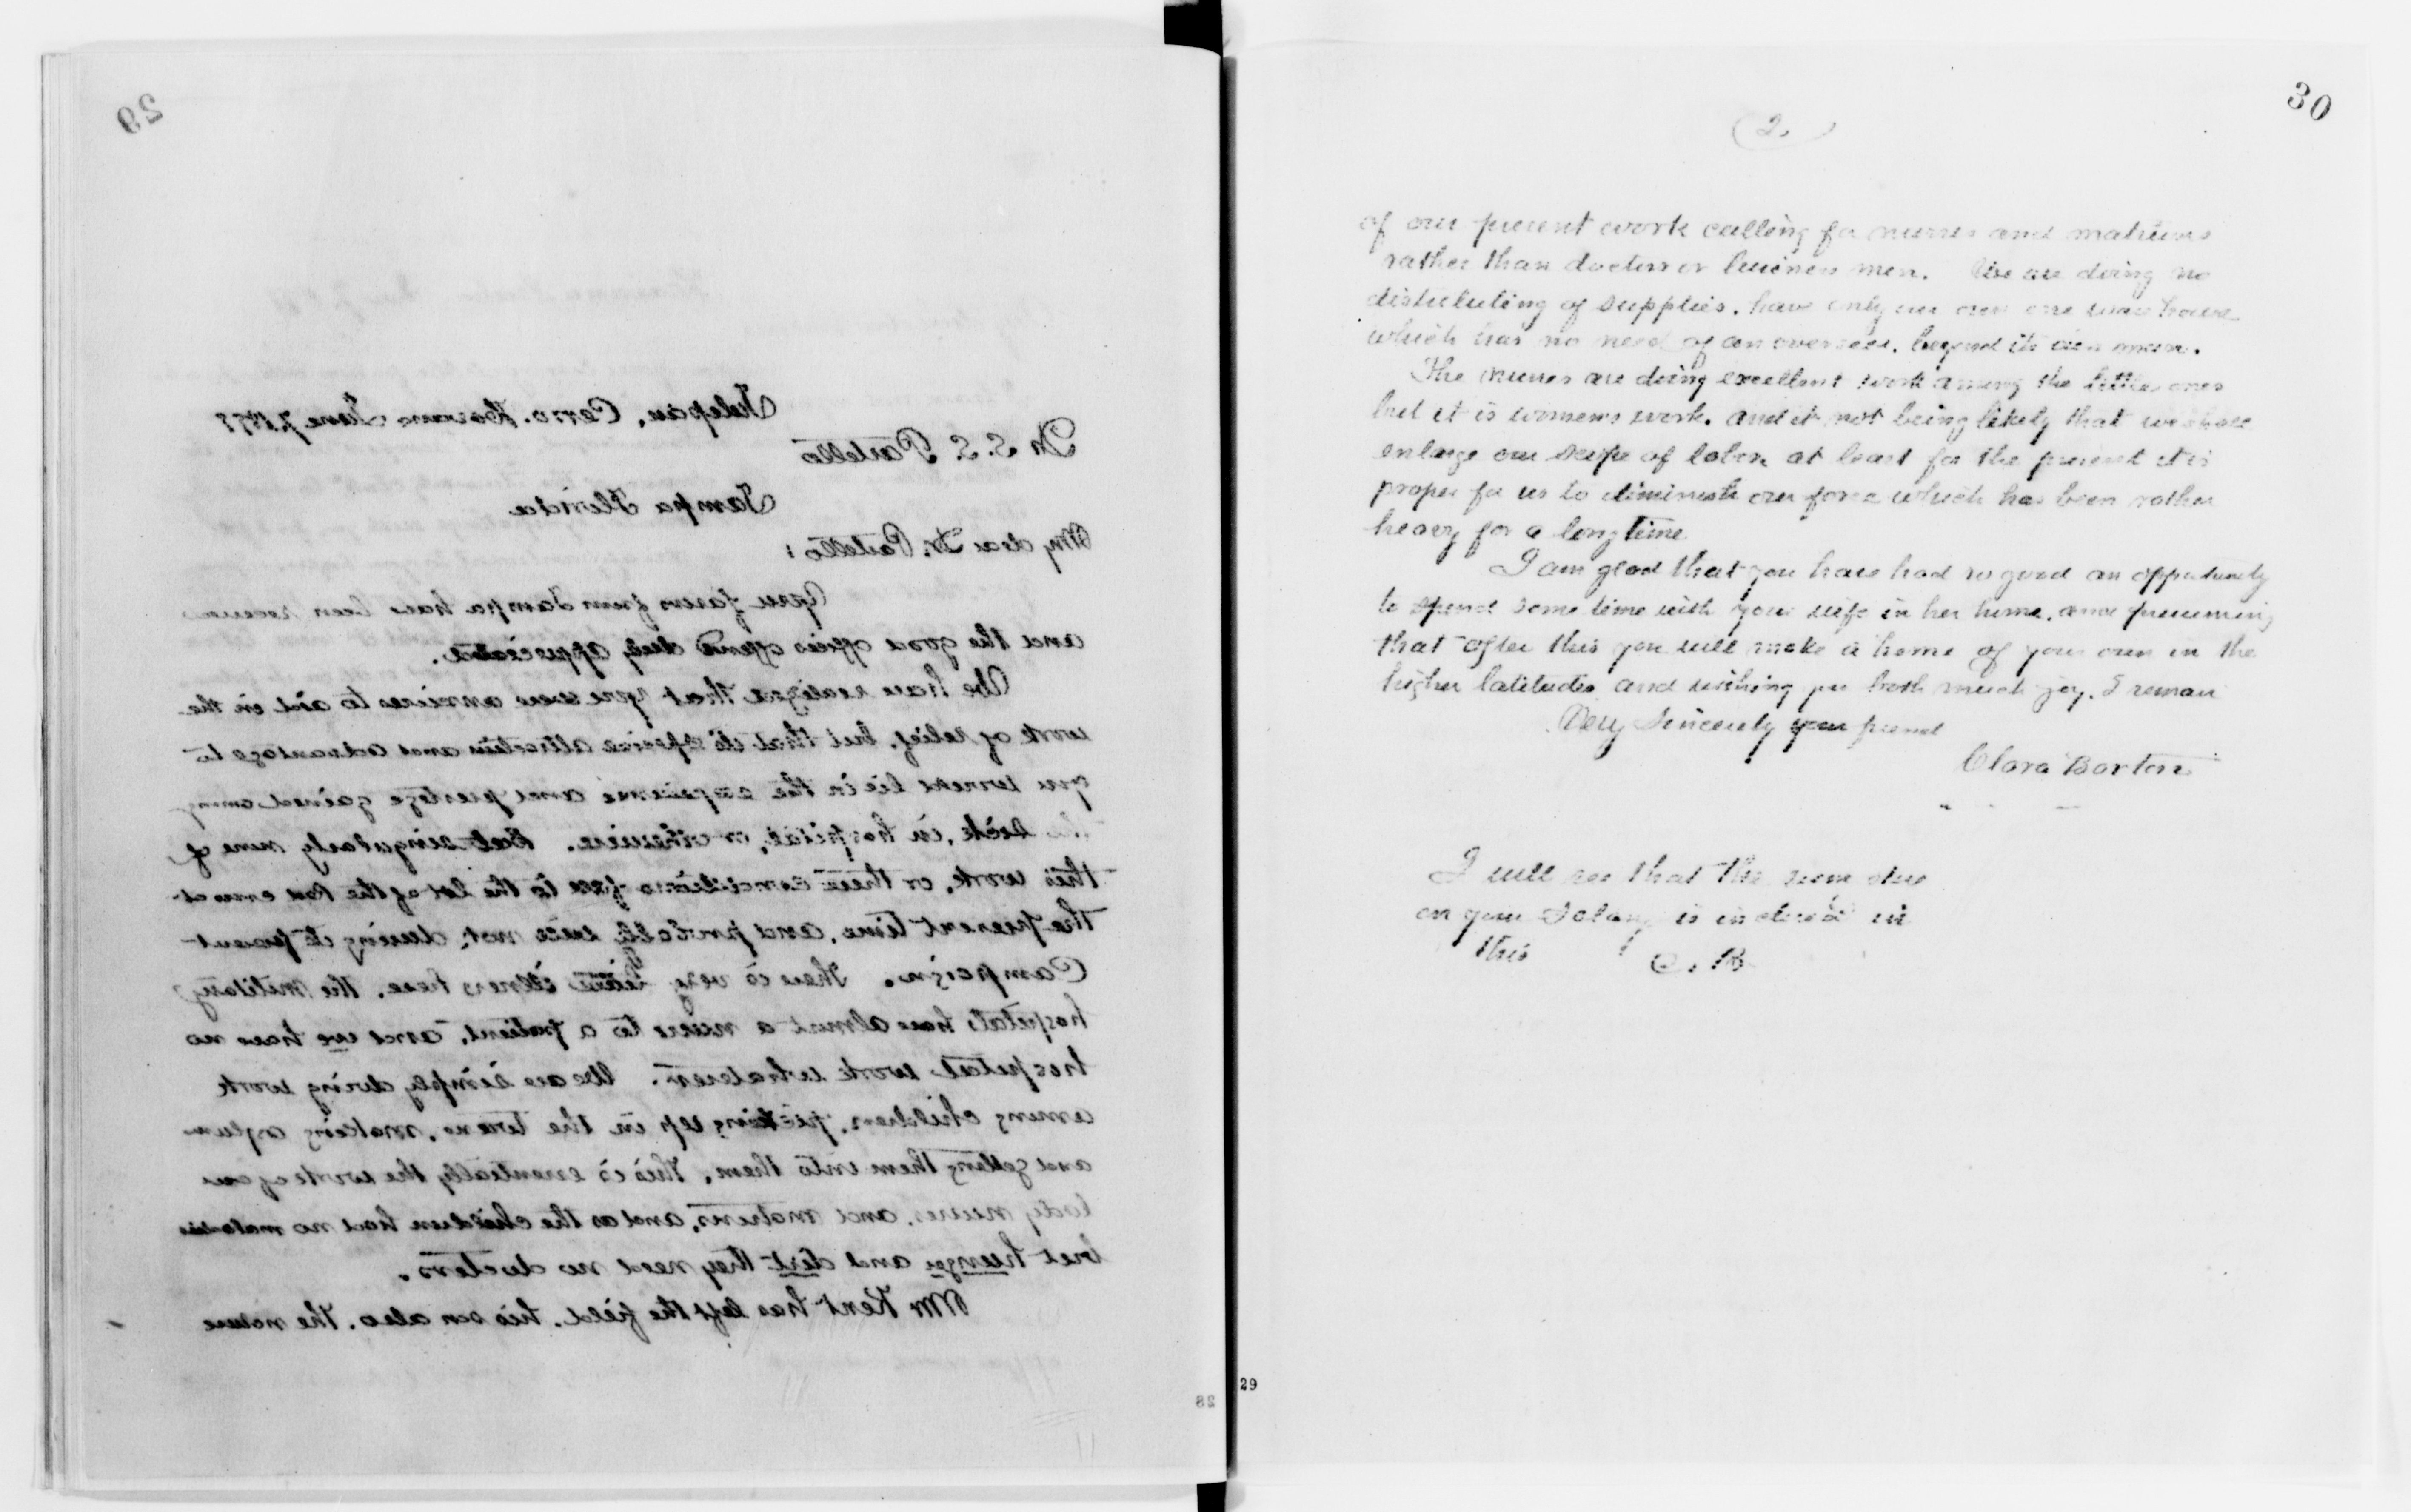 29
Tulepan, Cerro. Havana June 7.
Dr S. S. Partello
Tampa Florida
My dear Dr. Partello:
Your favors from Tampa have been received
and the good offices offered duly appreciated.
We have realized that you were anxious to aid in the
work of relief, but that its special attraction and advantage to
you would lie in the experience and prestige gained among
the sick, in hospital, or otherwise. But singularly none of
this work, or these conditions fall to the lot of the Red Cross at
the present time, and probably will not, during its present
Campaign. There is very little illness here. The military
hospitals have almost a nurse to a patient, and we have no
hospital work whatever. We are simply doing work
among children, picking up in the towns, making asylums
and getting them into them. This is essentially the work of our
lady nurses and matrons, and as the children had no maladies
but hunger and dirt they need no doctors.
Mr Kent has left the field. his son also. The nature
28
30
(2.)
of our present work calling for nurses and matrons
rather than doctors or business men. We are doing no
distributing of supplies. have only our own one ware house
which has no need of an overseer. beyond its own man.
The nurses are doing excellent work among the little ones
but it is womens work. and it not being likely that we shall
enlarge our scope of labor at least for the present it is
proper for us to diminish our force which has been rather
heavy for a long time
I am glad that you have had so good an opportunity
to spend some time with your wife in her home. and presuming
that after this you will make a home of your own in the
higher latitudes and wishing you both much joy. I remain
Very Sincerely your friend
Clara Barton
I will see that the sum due
on your Salary is inclosed in
this C. B
29